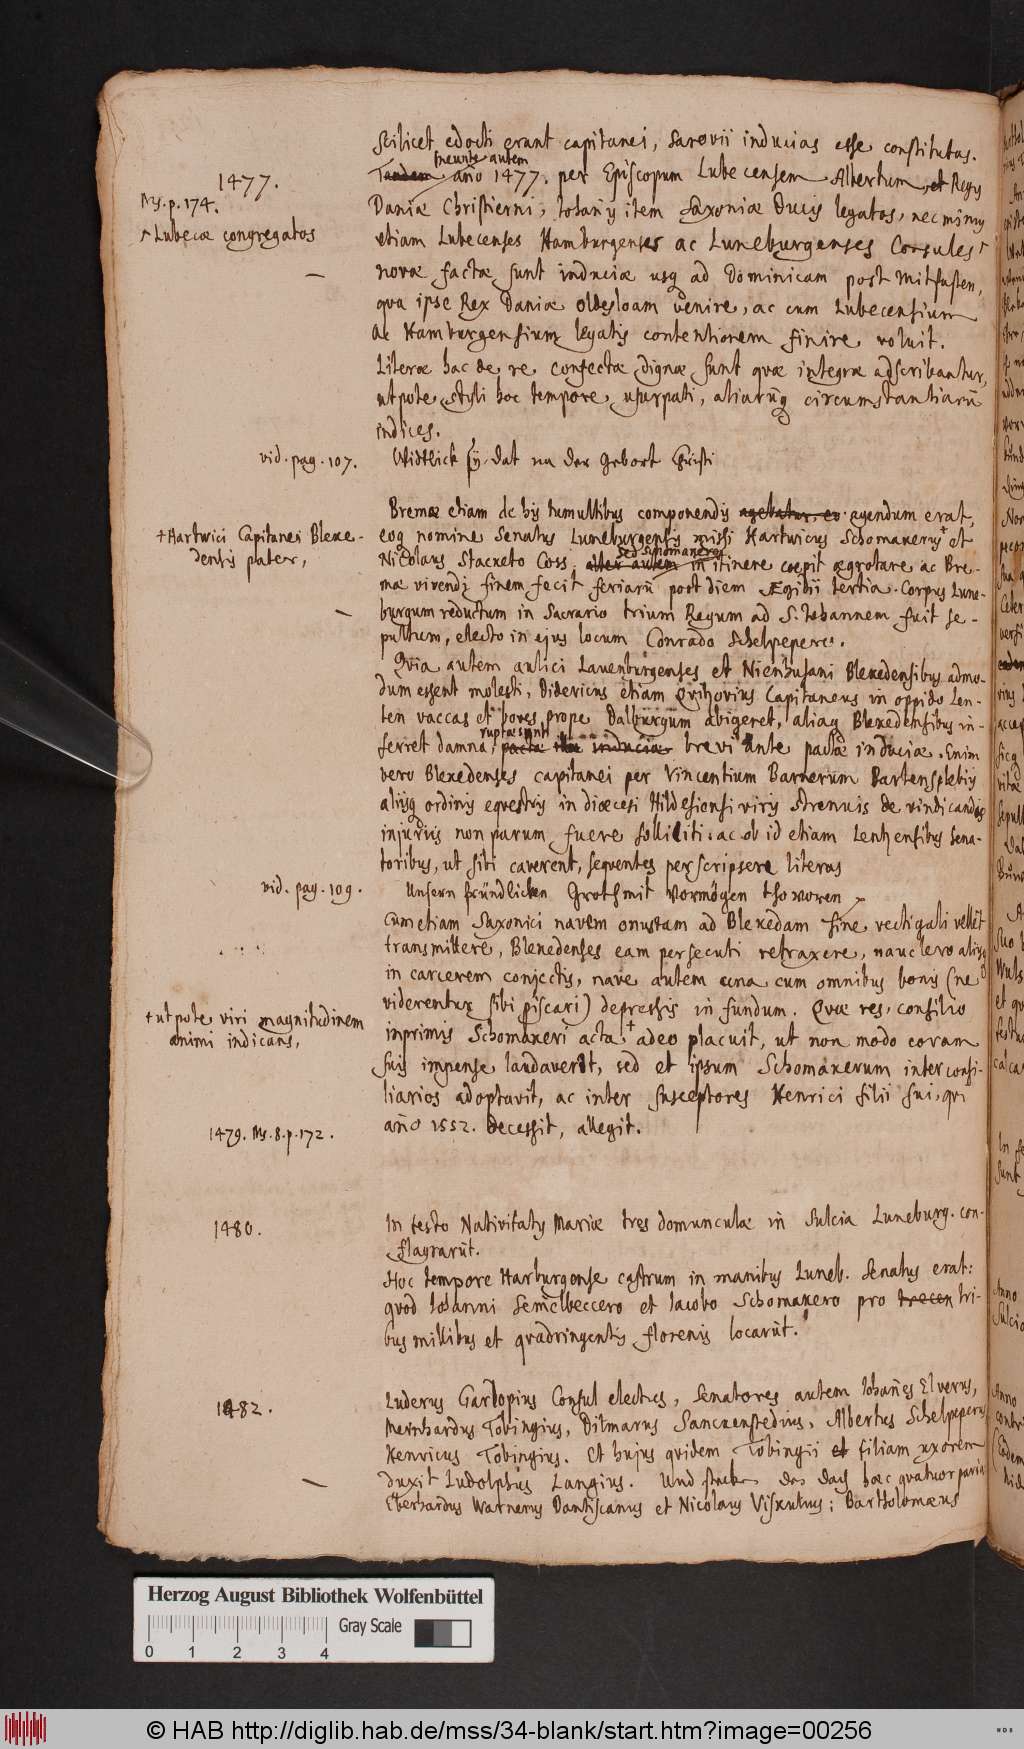 scilicet edocti erant capitanei, Sarovii inducias esse constitutas.
Ineunte autem
1477. Tandem año 1477. per Episcopum Lubecensem Albertum, et Regis
Ms. p. 174. Daniæ Christierni, Iohanis item Saxoniæ Ducis legatos, nec minus
Lubecæ congregatos etiam Lubecenses Hamburgenses ac Luneburgenses Consules
novæ factæ sunt induciæ usq ad Dominicam post Mitfasten,
qua ipse Rex Daniæ Oldesloam venire, ac cum Lubecensium
ac Hamburgensium legatis contentionem finire voluit.
Literæ hac de re confectæ dignæ sunt quæ integræ adscribantur,
utpote styli hoc tempore usurpati, aliarūq circumstantiarū
indices.
vid. pag. 107. Witlick sy dat na der Gebort Christi
Bremæ etiam de his tumultibus componendis agebatur, eo agendum erat,
+ Hartwici Capitanei Blexe- eoq nomine Senatus Luneburgensis missi Hartwicus Schomakerus + et
densis pater, Nicolaus Stacketo Coss. alter autem
sed Schomakerus
in itinere cœpit ægrotare, ac Bre-
mæ vivendi finem fecit feriarū post diem Ægidii tertia. Corpus Lune-
burgum reductum in Sacrario trium Regum ad S. Iohannem fuit se-
pultum, electo in ejus locum Conrado Schelpepere.
Qvia autem aulici Lauenburgenses et Nienhusani Blexedensibus admo-
dum essent molesti, Didericus etiam Qvitzovius Capitaneus in oppido Len-
tzen vaccas et boves prope Dalburgum abigeret, aliaq Blexedensibus in-
ruptæ sunt
ferret damna, pacta ita induciæ brevi ante pactæ induciæ. Enim
vero Blexedenses capitanei per Vincentium Barnerum Bartenslebis
aliisq ordinis eqvestris in diœcesi Hildesiensi viris strenuis de vindicandis
injuriis non parum fuere solliciti, ac ob id etiam Lentzensibus Sena-
toribus, ut sibi caverent, seqventes perscripsere literas
vid. pag. 109. Unsern fründlicken Groth mit vormögen tho voren
Cum etiam Saxonici navem onustam ad Blexedam sine vectigali vellēt
transmittere, Blexedenses eam persecuti retraxere, nauclero aliisq
in carcerem conjectis, nave autem una cum omnibus bonis (ne
viderentur sibi piscari) depressis in fundum. Qvæ res, consilio
+ utpote viri magnitudinem inprimis Schomakeri acta, + adeo placuit, ut non modo coram
animi indicans, suis impense laudaverit, sed et ipsum Schomakerum inter consi-
liarios adoptavit, ac inter susceptores Henrici filii sui, qvi
1479. Ms. 8. p. 172. año 1552. decessit, allegit.
1480. In festo Nativitatis Mariæ tres domunculæ in Sulcia Luneburg. con-
flagrarūt.
Hoc tempore Harburgense castrum in manibus Luneb. Senatus erat:
qvod Iohanni Semelbeccero et Iacobo Schomakero pro trecen tri-
bus millibus et qvadringentis florenis locarūt.
1482. Luderus Garlopius Consul electus, Senatores autem Iohañes Elverus,
Meinhardus Tobingius, Ditmarus Sanckenstedius, Albertus Schelpeperus
Henricus Tobingius. Et hujus qvidem Tobingii et filiam uxorem
duxit Ludolphus Langius. Und das hæc qvatuor paria
Eberhardus Warnerus Dantiscanus et Nicolaus Viskulus; Bartholomæus
Herzog August Bibliothek Wolfenbüttel
Gray Scale
0 1 2 3 4
© HAB http://diglib.hab.de/mss/34-blank/start.htm?image=00256